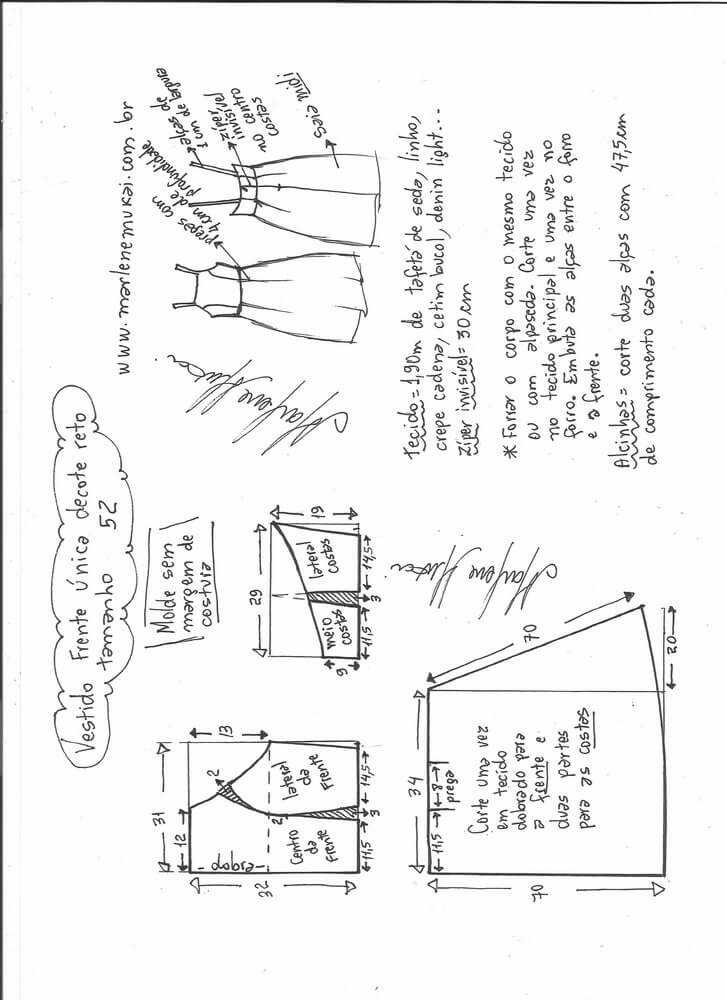 Vestido frente única decote reto
tamanho 52
www.marlenemukai.com.br
Molde sem
margem de
costura
31
12
13
32
-dobra-
2
2
Centro
da
Frente
lateral
da
Frente
11,5
3
14,5
29
19
9
meio
costas
lateral
costas
11,5
3
14,5
34
11,5
8
prega
70
70
20
Corte uma vez
em tecido
dobrado para
a frente e
duas partes
para as costas
Marlene Mukai
Marlene Mukai
pregas com
4 cm de
profundidade
alças de
1 cm de largura
zíper
invisível
no centro
costas
Saia midi
Tecido = 1,90m de tafetá de seda, linho,
crepe cadena, cetim bucol, denin light...
Zíper invisível = 30 cm
* Forrar o corpo com o mesmo tecido
ou com alpaseda. Corte uma vez
no tecido principal e uma vez no
forro. Embuta as alças entre o forro
e a frente.
Alcinhas = corte duas alças com 47,5 cm
de comprimento cada.